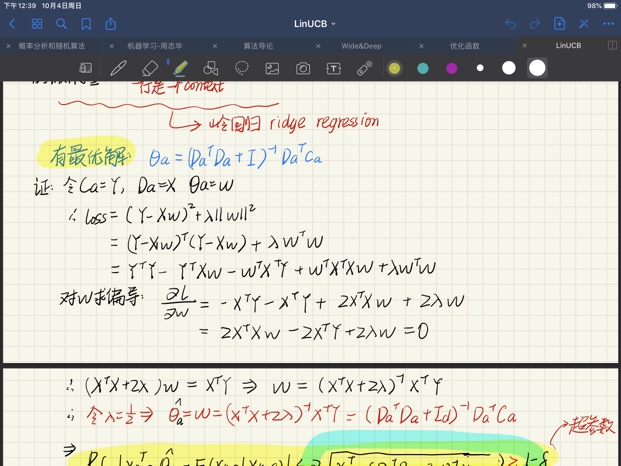 下午12:39 10月4日周日
98%
LinUCB
概率分析和随机算法
机器学习-周志华
算法导论
Wide&Deep
优化函数
LinUCB
行是一个context
岭回归 ridge regression
有最优解: θa = (DaᵀDa + I)⁻¹ DaᵀCa
证: 令Ca=Y, Da=X θa=w
∴ loss = (Y-Xw)² + λ||w||²
= (Y-Xw)ᵀ(Y-Xw) + λwᵀw
= YᵀY - YᵀXw - wᵀXᵀY + wᵀXᵀXw + λwᵀw
对w求偏导: ∂L/∂w = -XᵀY - XᵀY + 2XᵀXw + 2λw
= 2XᵀXw - 2XᵀY + 2λw = 0
∴ (XᵀX+2λ)w = XᵀY ⇒ w = (XᵀX+2λ)⁻¹XᵀY
∴ 令λ=1/2 ⇒ θ̂a = w = (XᵀX+2λ)⁻¹XᵀY = (DaᵀDa + Id)⁻¹DaᵀCa
超参数
⇒